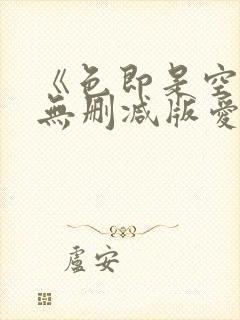 《色即是空
無刪减版愛
盧安